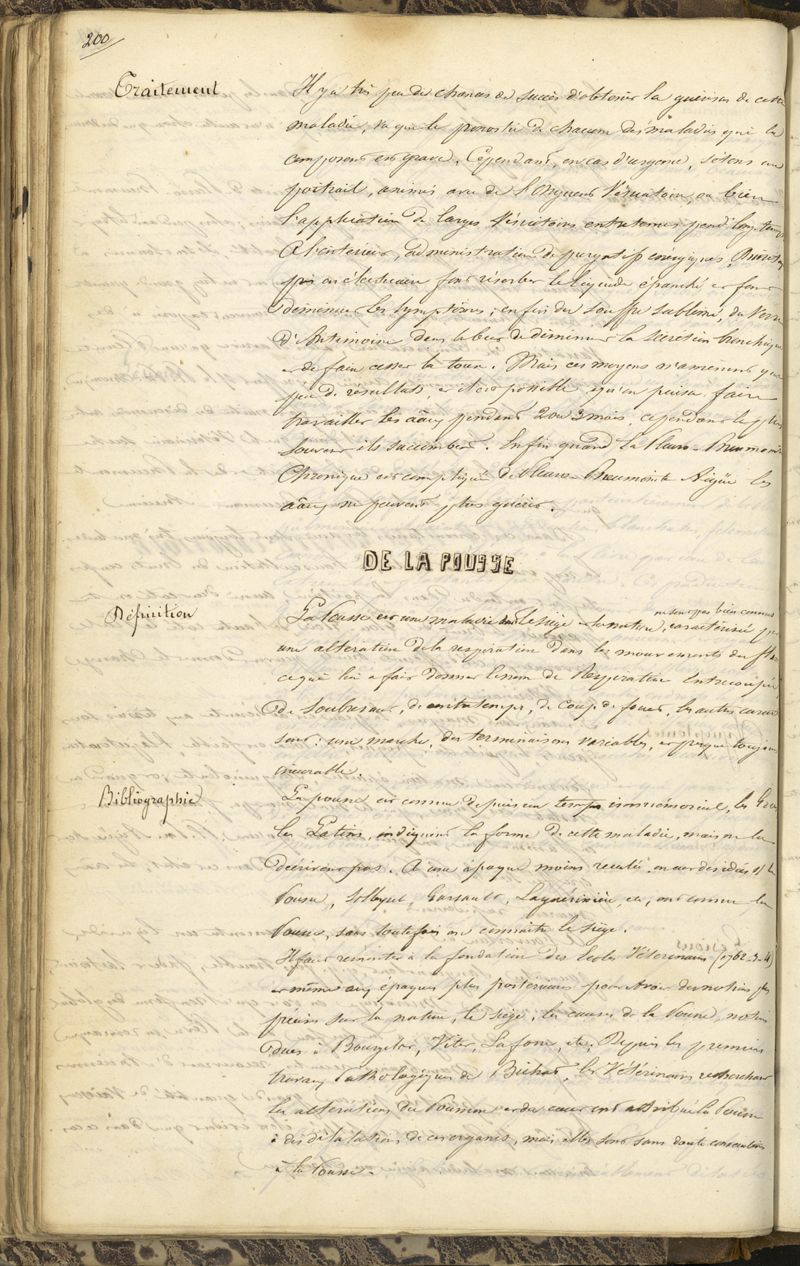 200
Traitement
Il y a très peu de chances de succès d'obtenir la guérison de cette
maladie, vu que le pronostic de chacune des maladies qui la
composent est grave. Cependant, en cas d'urgence, sétons au
poitrail, animés avec de l'Onguent Vésicatoire, ou bien
l'application de larges vésicatoires entretenus pend! longtemps
A l'intérieur, administration de purgatifs énergiques,
pris en électuaire font résorber le liquide épanché et font
diminuer les symptômes; enfin du Souffre sublimé, du Verre
d'Antimoine dans le but de diminuer la sécrétion bronchique
et de faire cesser la toux. Mais ces moyens n'amènent que
peu de résultats, et il est possible qu'on puisse faire
travailler les aâux pendant 2 ou 3 mois, cependant le plus
souvent ils succombent. Enfin quand la Pleuro-Pneumonie
Chronique est compliquée de Pleuro-Pneumonite Aigüe les
aâux ne peuvent plus guérir.
DE LA POUSSE
Définition
La Pousse est une maladie dont le siège et la nature ne sont pas bien connus, caractérisée par
une altération de la respiration dans les mouvements du flanc
ce qui lui a fait donner le nom de Respiration Entrecoupée,
de Soubresaut, de contretemps, de Coup de fouet, les autres caract
sont: une marche, des terminaisons variables, et presque toujours
incurable.
Bibliographie
La pousse est connue depuis un temps immémorial, les Grecs
les Latins, indiquent la forme de cette maladie, mais ne la
décrivent pas. A une époque moins reculée, on eut des idées s/ la
Pousse, Solleysel, Garsault, Laguérinière, etc, ont connu la
Pousse, sans toutefois en connaître le siège.
Il faut remonter à la fondation des Ecoles Vétérinaires (1762-3-4)
et même aux époques plus postérieures pour avoir des notions plus
précises sur la nature, le siège, les causes de la Pousse, notions
dues à Bourgelat, Vitet, Lafosse, etc. Depuis les premiers
travaux Pathologiques de Bichat, les Vétérinaires recherchant
les altérations du Poumon et du cœur ont attribué la Pousse
à des dilatations de ces organes, mais elles sont sans doute consécutives
à la Pousse.